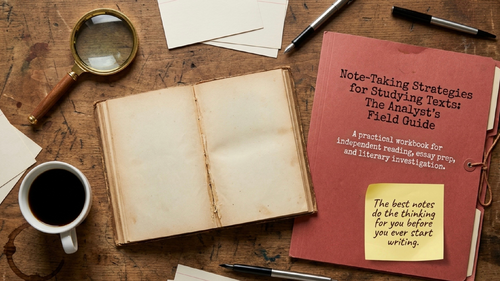 Note-Taking Strategies
for Studying Texts:
The Analyst's
Field Guide
A practical workbook for
independent reading, essay prep,
and literary investigation.
The best notes
do the thinking
for you before
you ever start
writing.